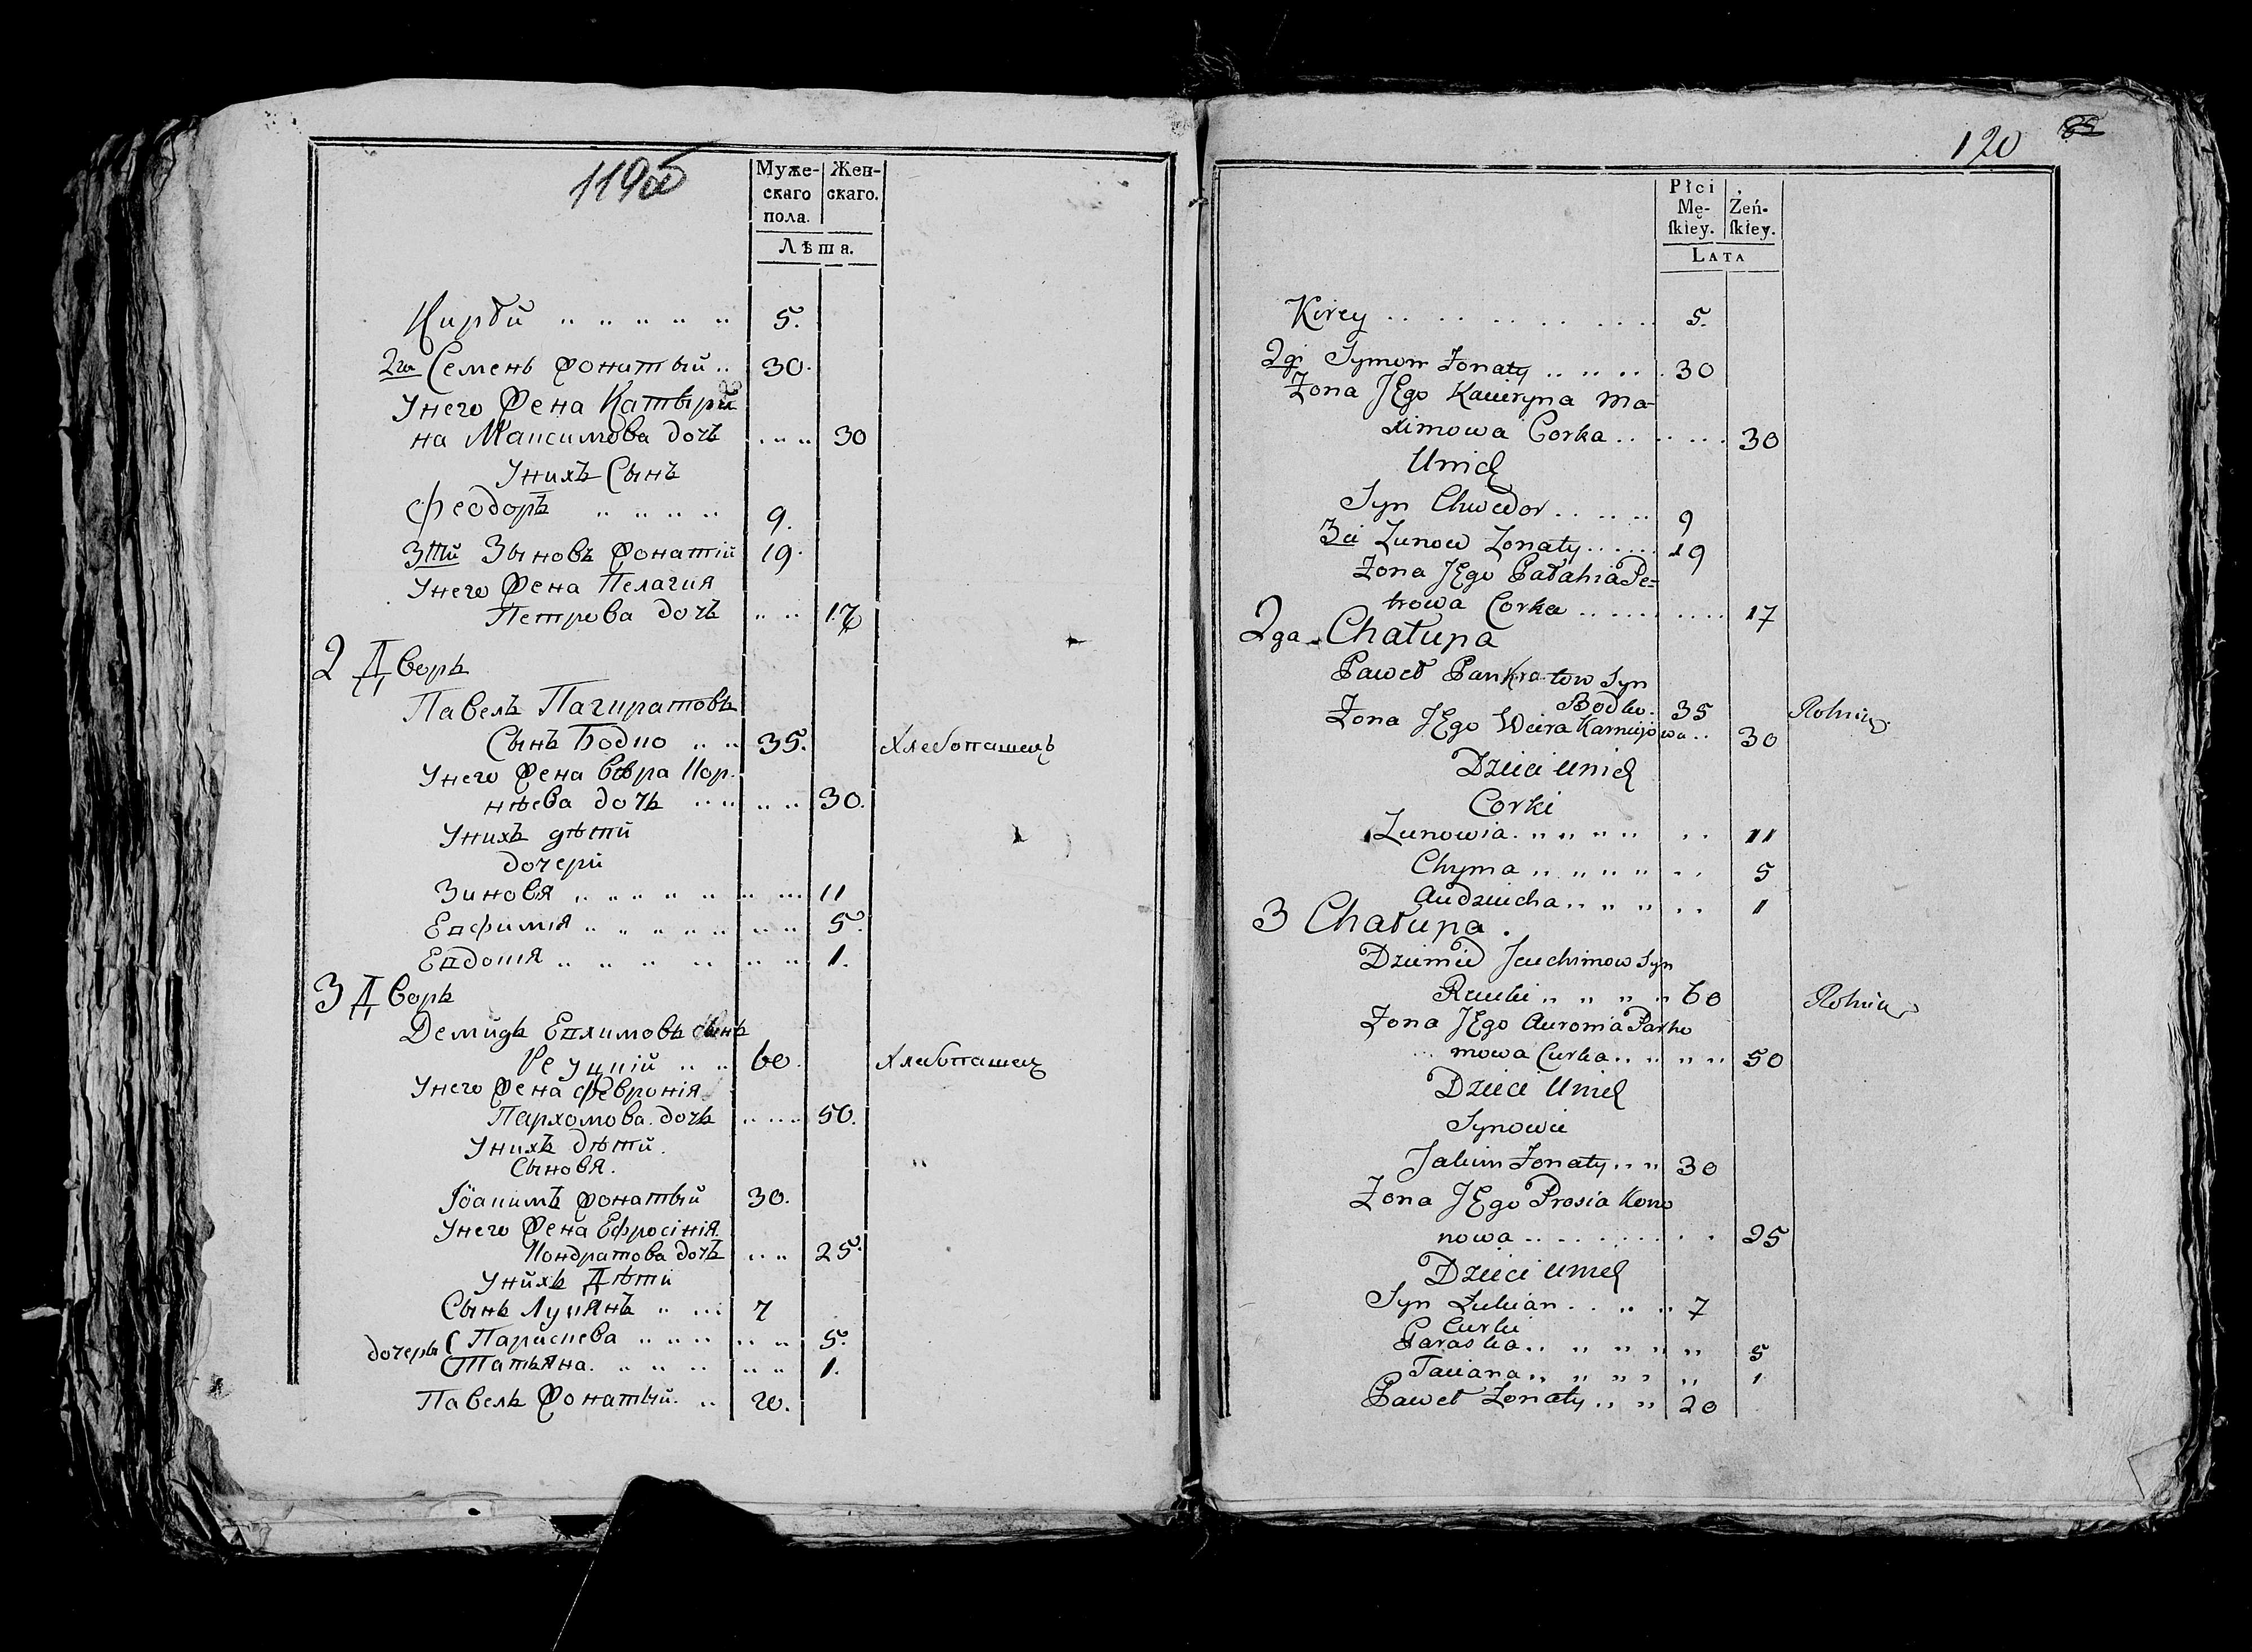 119об
Муже-
скаго
пола.
Жен-
скаго.
Лѣта.
Кирѣй 5.
2й Семенъ жонатый 30.
Унего жена Катыри
на Максимова дочь 30
Унихъ Сынъ
Феодоръ 9.
3тй Зыновъ жонатій 19.
Унего жена Пелагия
Петрова дочь 17
2 Дворъ
Павелъ Панкратовъ
Сынъ Бодко 35. Хлебопашецъ
Унего жена Вѣра Кор.
нѣева дочь 30.
Унихъ дѣти
дочери
Зиновя 11
Евфимія 5.
Евдокия 1.
3 Дворъ
Демидъ Евхимовъ сынъ
Рецкій 60. Хлебопашецъ
Унего жена Февронія
Пархомова дочь 50.
Унихъ дѣти.
Сыновя.
Іоакимъ жонатый 30.
Унего жена Ефросінія
Кондратова дочь 25.
Унихъ Дѣти
Сынъ Лукянъ 7
дочеры Параскева 5.
Татьяна. 1.
Павелъ жонатый. 20.
120
Płci
Mę-
ſkiey.
Żeń-
ſkiey.
LATA
Kirey 5.
2gi Symon Żonaty 30
Żona JEgo Kacieryna Ma-
ximowa Corka 30
Unich
Syn Chwedor 9
3ci Zunow Żonaty 19
Żona JEgo Pałahia Pe-
trowa Corka 17
2ga Chałupa
Paweł Pankratow Syn
Bodko. 35 Rolnik
Żona JEgo Wiera Karniejowa 30
Dzieci unich
Corki
Zunowia 11
Chyma 5
Audziucha 1
3 Chałupa.
Dziemid Jauchimow Syn
Recki 60 Rolnik
Żona JEgo Auronia Parho
mowa Curka 50
Dzieci Unich
Synowie
Jakim Żonaty 30
Żona JEgo Prosia Kono
nowa 25
Dzieci unich
Syn Łukian 7
Curki
Paraska 5
Taciana 1
Paweł Żonaty 20